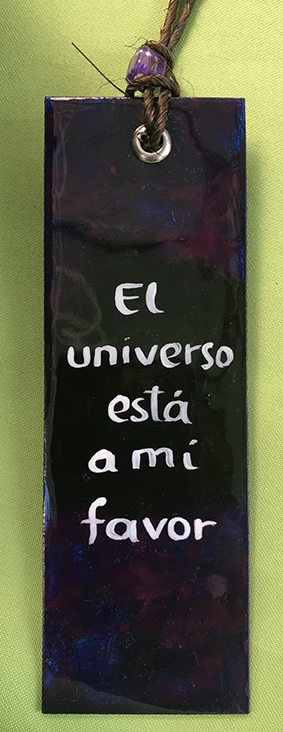 El
universo
está
a mi
favor